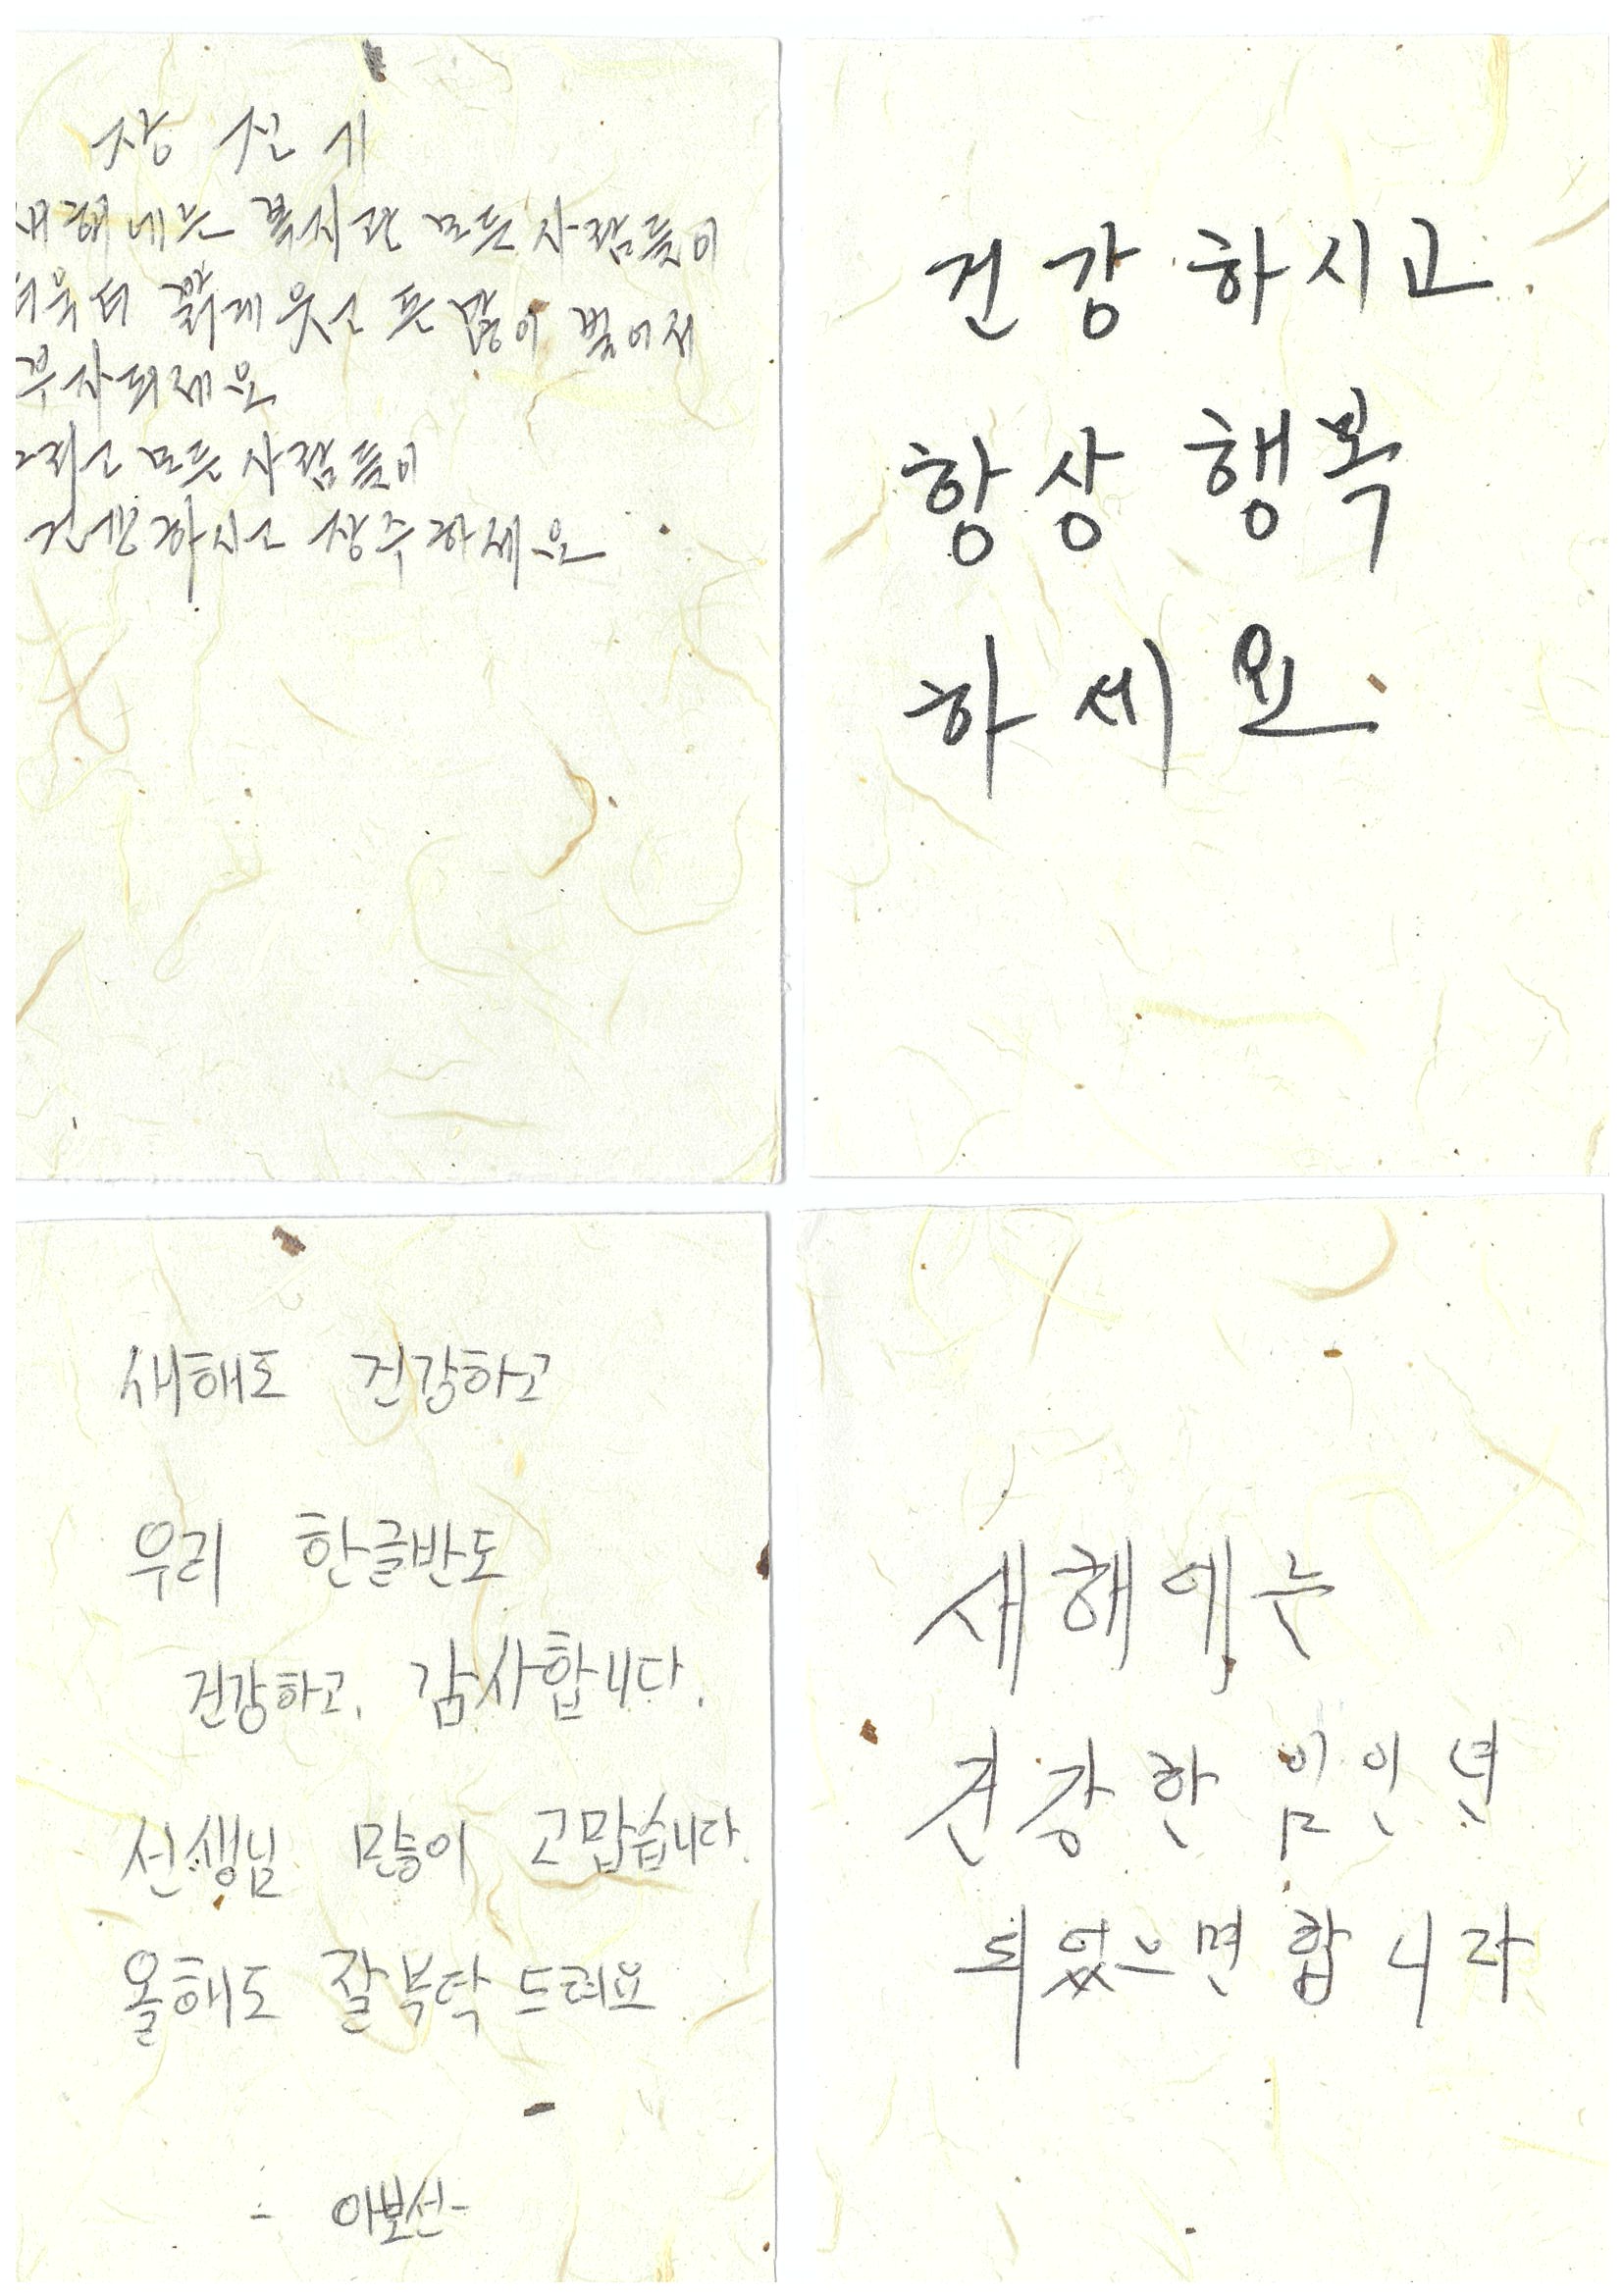 장 선 기
새해에는 복시관 모든 사람들이
더욱더 밝게 웃고 돈 많이 벌어서
부자되세요
그리고 모든 사람들이
건강하시고 장수하세요
건강하시고
항상 행복
하세요
새해도 건강하고
우리 한글반도
건강하고, 감사합니다.
선생님 많이 고맙습니다.
올해도 잘 부탁 드려요
- 이보선 -
새해에는
건강한 임인년
되었으면 합니다